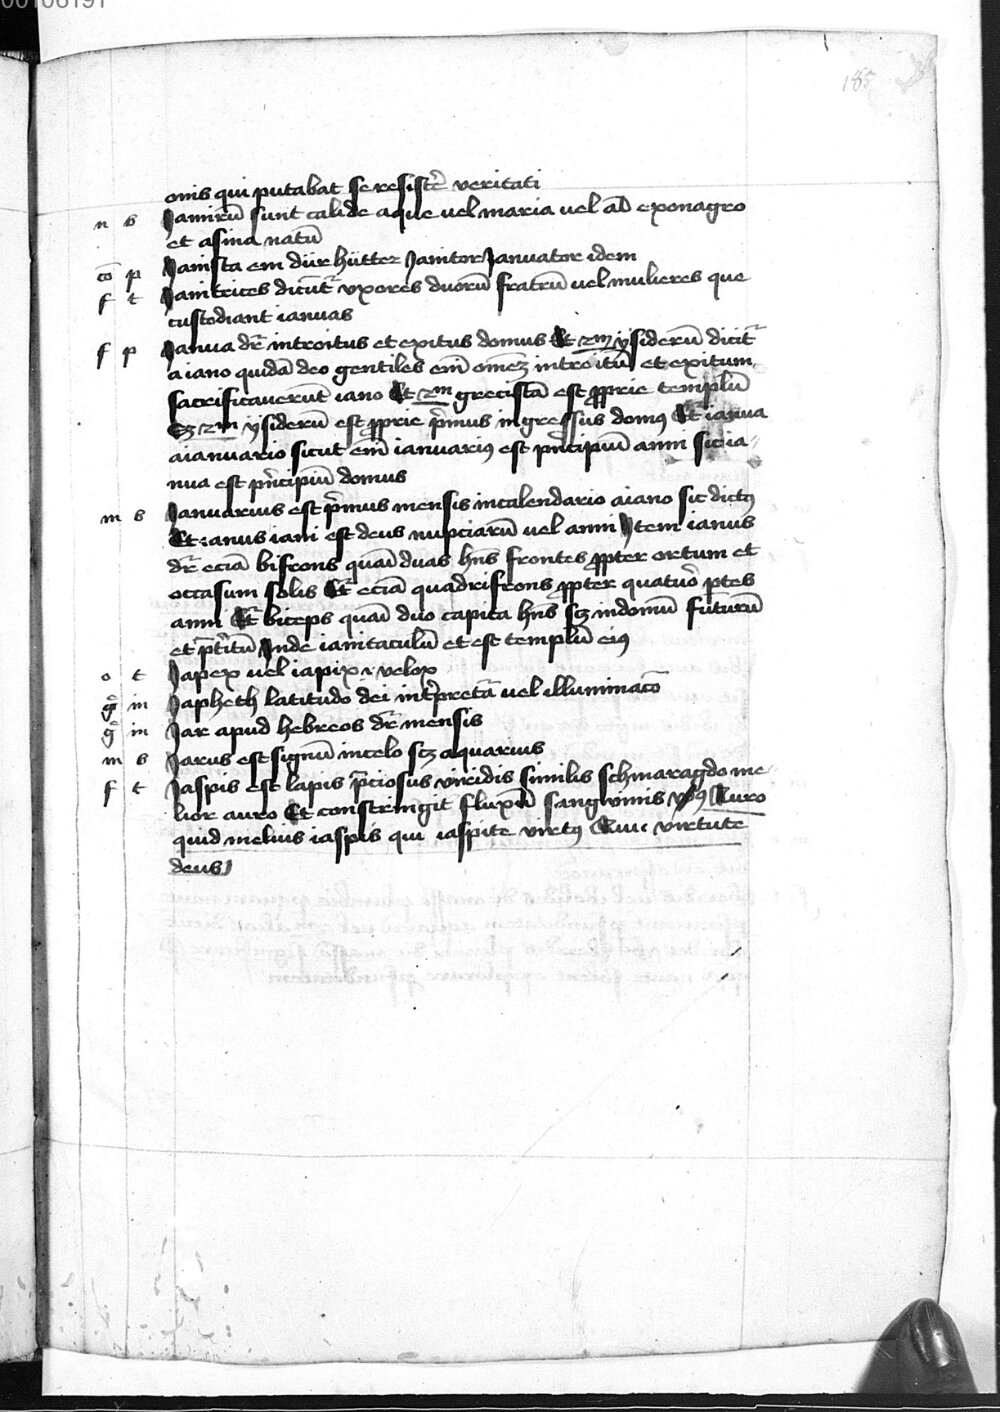 00106191
185
onis qui putabat se resistēr veritati
n s Jamirū sunt calide aque vel maria vel ad exonagro
et asina natū
cō p Janista ein dür hütter Janitor Januator idem
f t Janitrices dicūtr uxores duorū fratrū vel mulieres que
custodiant ianuas
f p Janua dr̄ introitus et exitus domus Et 2m ysiderū dicitr̄
a iano quidā deo gentiles em̄ omēz introitū et exitum
sacrificaverunt iano Et 2m grecistā est proprie templū
Sz 2m ysiderū est proprie prīmus ingressus domus Et ianua
a ianuario sicut em̄ ianuarius est principiū anni sic ia=
nua est prīncipiū domus
m s Januarius est prīmus mensis in calendario a iano sic dictus
Et ianus iani est deus nupciarū vel anni Item ianus
dr̄ eciā bifrons quasi duas hn̄s frontes propter ortum et
occasum solis Et eciā quadrifrons propter quatuor partes
anni Et biceps quasi duo capita hn̄s scz in domū futurū
et pr̄teritū Inde ianitaculū et est templū eius
o t Japex vel iapix velox
g in Japheth latitudo dei intr̄pretatā vel illuminacō
g in Jar apud hebreos dr̄ mensis
m s Jarus est signū in celo scz aquarius
f t Jaspis est lapis pr̄ciosus viridis similis schmaragdo me=
lior auro Et constringit fluxū sangwinis vsus Auro
quid melius iaspis qui iaspite virtus Quic virtute
deus